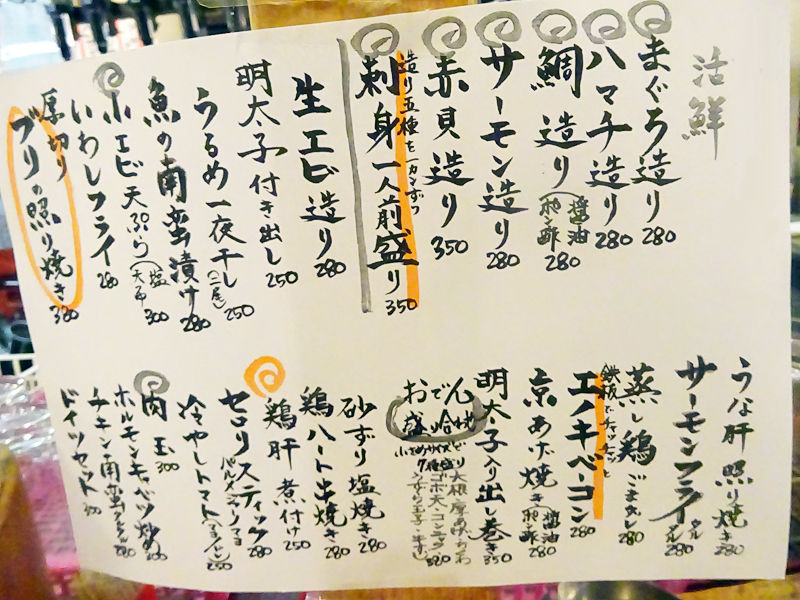 活鮮
まぐろ造り 280
ハマチ造り 280
鯛造り(醤油 ポン酢 280
サーモン造り 280
赤貝造り 350
造り五種を一カンずつ
刺身一人前盛り 350
生エビ造り 280
明太子付き出し 250
うるめ一夜干し(二尾) 250
魚の南蛮漬け 280
小エビ天ぷら(塩 天つゆ 300
いわしフライ 280
厚切り
ブリの照り焼き 380
うな肝照り焼き 280
サーモンフライ タルタル 280
蒸し鶏ごまダレ 280
エノキベーコン 280
京あげ焼き(醤油 ポン酢 280
明太子入り出し巻き 350
おでん盛り合わせ
砂ずり塩焼き 280
鶏ハート串焼き 280
鶏肝煮付け 250
セロリスティック 280
冷やしトマト(マヨネーズ) 250
肉玉 300
ホルモンキャベツ炒め 300
チキン南蛮タルタル 280
ドイツセット 300